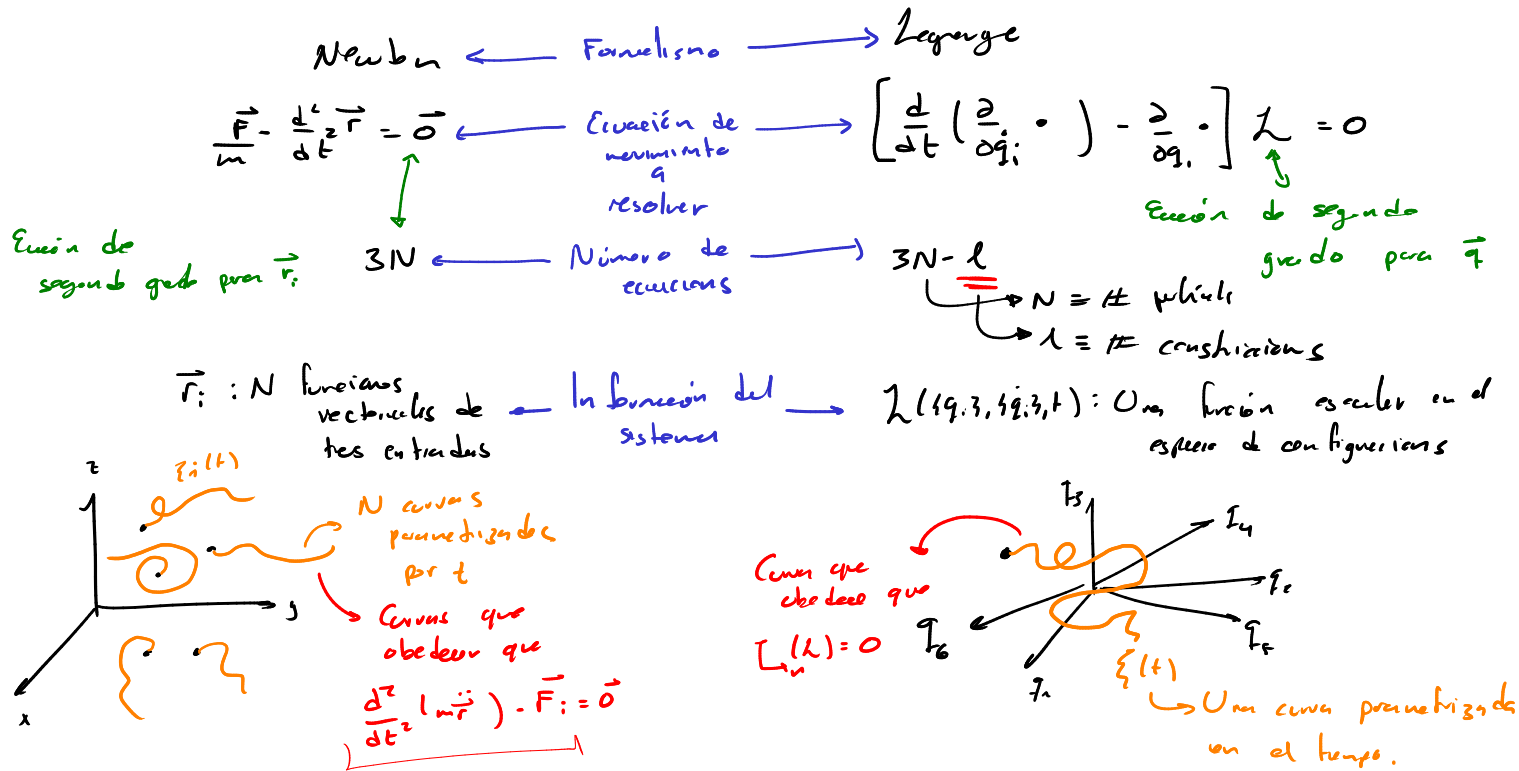 Newton ← Formalismo → Lagrange
\frac{\vec{F}}{m} - \frac{d^2}{dt^2} \vec{r} = \vec{0} ← Ecuación de movimiento a resolver → \left[ \frac{d}{dt} \left( \frac{\partial}{\partial \dot{q}_i} \bullet \right) - \frac{\partial}{\partial q_i} \bullet \right] L = 0
Ecuación de
segundo grado para \vec{r}_i
Ecuación de segundo
grado para \vec{q}
3N ← Número de ecuaciones → 3N - l
N ≡ # partículas
l ≡ # constricciones
\vec{r}_i : N funciones
vectoriales de
tres entradas
← Información del
sistema →
L({q_i}, {\dot{q}_i}, t) : Una función escalar en el
espacio de configuraciones
z
y
x
ξ_i(t)
N curvas
parametrizadas
por t
Curvas que
obedecen que
\frac{d^2}{dt^2} (m\ddot{\vec{r}}) - \vec{F}_i = \vec{0}
Curva que
obedece que
(L) = 0
q_3
q_4
q_2
q_5
q_6
q_1
ξ(t)
Una curva parametrizada
en el tiempo.